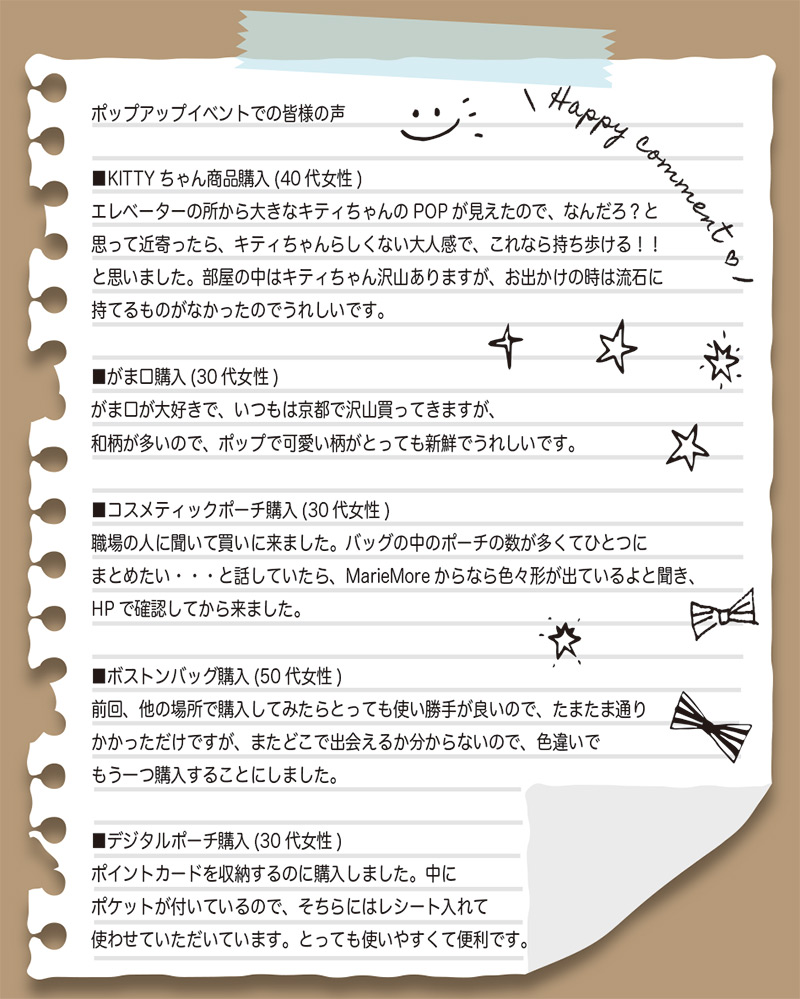 ポップアップイベントでの皆様の声
\ Happy comment ♡ /
■KITTYちゃん商品購入(40代女性)
エレベーターの所から大きなキティちゃんのPOPが見えたので、なんだろ？と
思って近寄ったら、キティちゃんらしくない大人感で、これなら持ち歩ける！！
と思いました。部屋の中はキティちゃん沢山ありますが、お出かけの時は流石に
持てるものがなかったのでうれしいです。
■がま口購入(30代女性)
がま口が大好きで、いつもは京都で沢山買ってきますが、
和柄が多いので、ポップで可愛い柄がとっても新鮮でうれしいです。
■コスメティックポーチ購入(30代女性)
職場の人に聞いて買いに来ました。バッグの中のポーチの数が多くてひとつに
まとめたい・・・と話していたら、MarieMoreからなら色々形が出ているよと聞き、
HPで確認してから来ました。
■ボストンバッグ購入(50代女性)
前回、他の場所で購入してみたらとっても使い勝手が良いので、たまたま通り
かかっただけですが、またどこで出会えるか分からないので、色違いで
もう一つ購入することにしました。
■デジタルポーチ購入(30代女性)
ポイントカードを収納するのに購入しました。中に
ポケットが付いているので、そちらにはレシート入れて
使わせていただいています。とっても使いやすくて便利です。